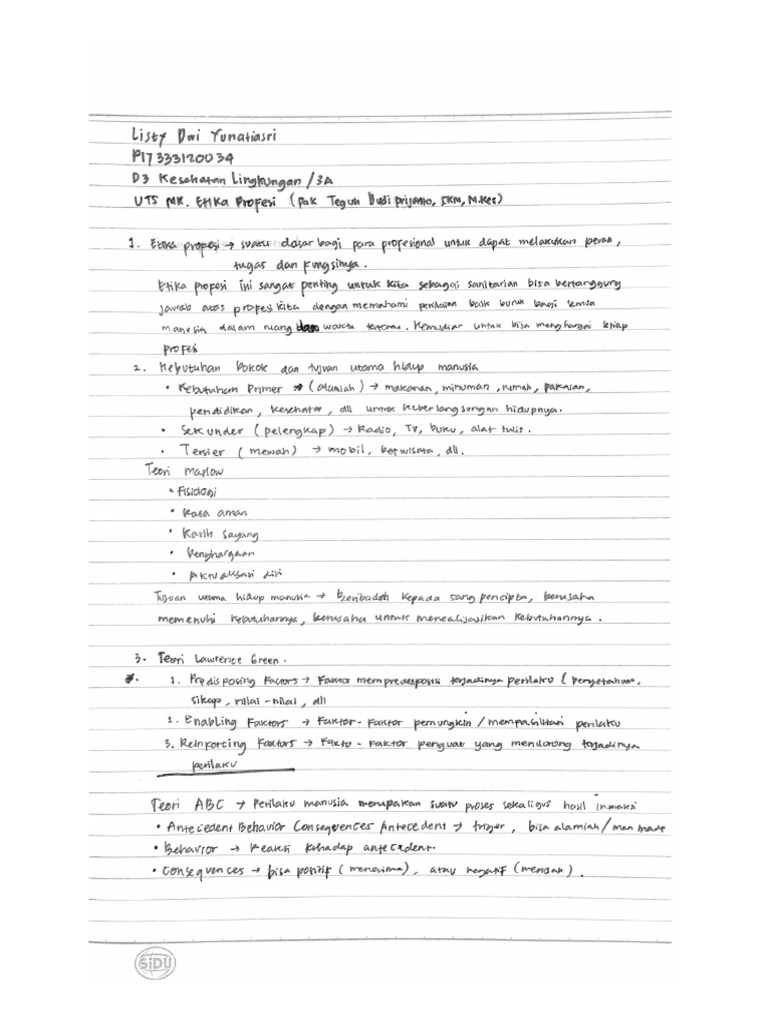 Listy Dwi Yunatiasri
P17333120034
D3 Kesehatan Lingkungan / 3A
UTS MK. Etika Profesi (Pak Teguh Budi Prijanto, SKM, M.Kes)
1. Etika profesi → suatu dasar bagi para profesional untuk dapat melakukan peran,
tugas dan fungsinya.
Etika profesi ini sangat penting untuk kita sebagai sanitarian bisa bertanggung
jawab atas profesi kita dengan memahami perilaian baik buruk bagi semua
manusia dalam ruang waktu tertentu. Kemudian untuk bisa menghargai setiap
profesi
2. Kebutuhan Pokok dan tujuan utama hidup manusia
• Kebutuhan Primer → (alamiah) → makanan, minuman, rumah, pakaian,
pendidikan, kesehatan, dll untuk keberlangsungan hidupnya.
• Sekunder (pelengkap) → Radio, TV, buku, alat tulis.
• Tersier (mewah) → mobil, berwisata, dll.
Teori Maslow
• Fisiologi
• Rasa aman
• Kasih sayang
• Penghargaan
• Aktualisasi diri
Tujuan utama hidup manusia → Beribadah kepada sang pencipta, berusaha
memenuhi kebutuhannya, berusaha untuk merealisasikan kebutuhannya.
3. Teori Lawrence Green.
1. Predisposing Factors → Faktor mempredisposisi terjadinya perilaku (pengetahuan,
sikap, nilai-nilai, dll
2. Enabling Faktors → Faktor-Faktor pemungkin / mempasilitasi perilaku
3. Reinforcing Faktors → Faktor-Faktor penguat yang mendorong terjadinya
perilaku
Teori ABC → Perilaku manusia merupakan suatu proses sekaligus hasil interaksi
• Antecedent Behavior Consequences Antecedent → triger, bisa alamiah / man made
• Behavior → Reaksi terhadap antecedent.
• Consequences → bisa positif (menerima), atau negatif (menolak).
SiDU